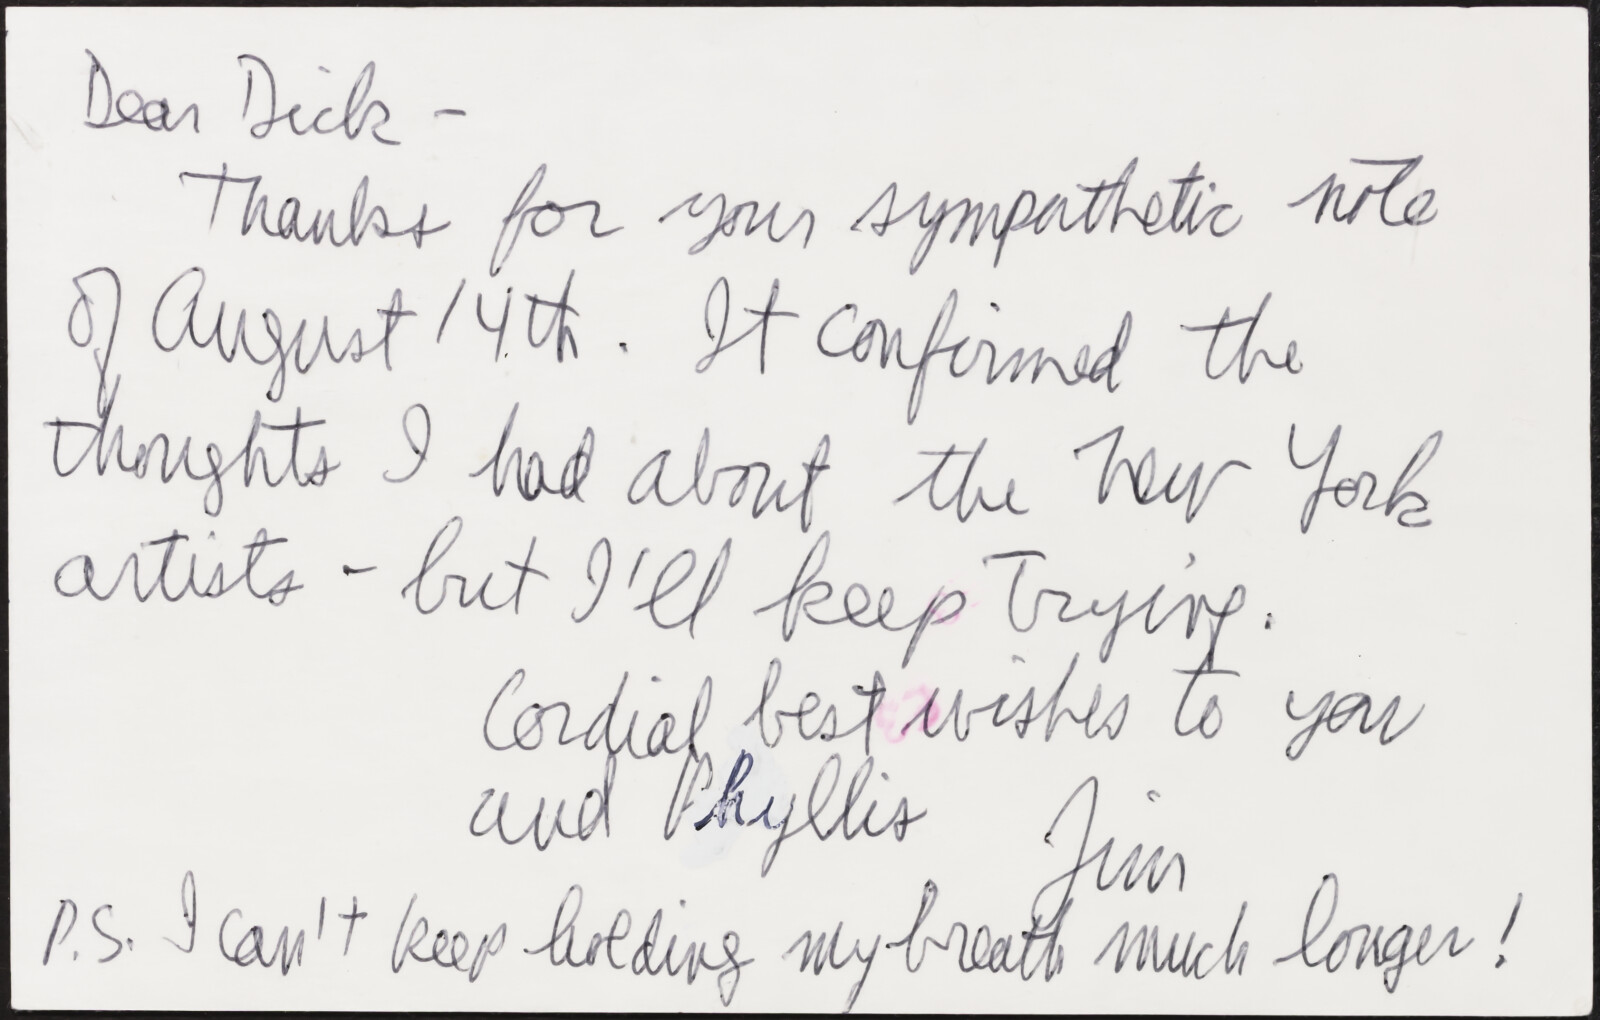 Dear Dick -
Thanks for your sympathetic note
of August 14th. It confirmed the
thoughts I had about the New York
artists - but I'll keep trying.
Cordial best wishes to you
and Phyllis
Jim
P.S. I can't keep holding my breath much longer!